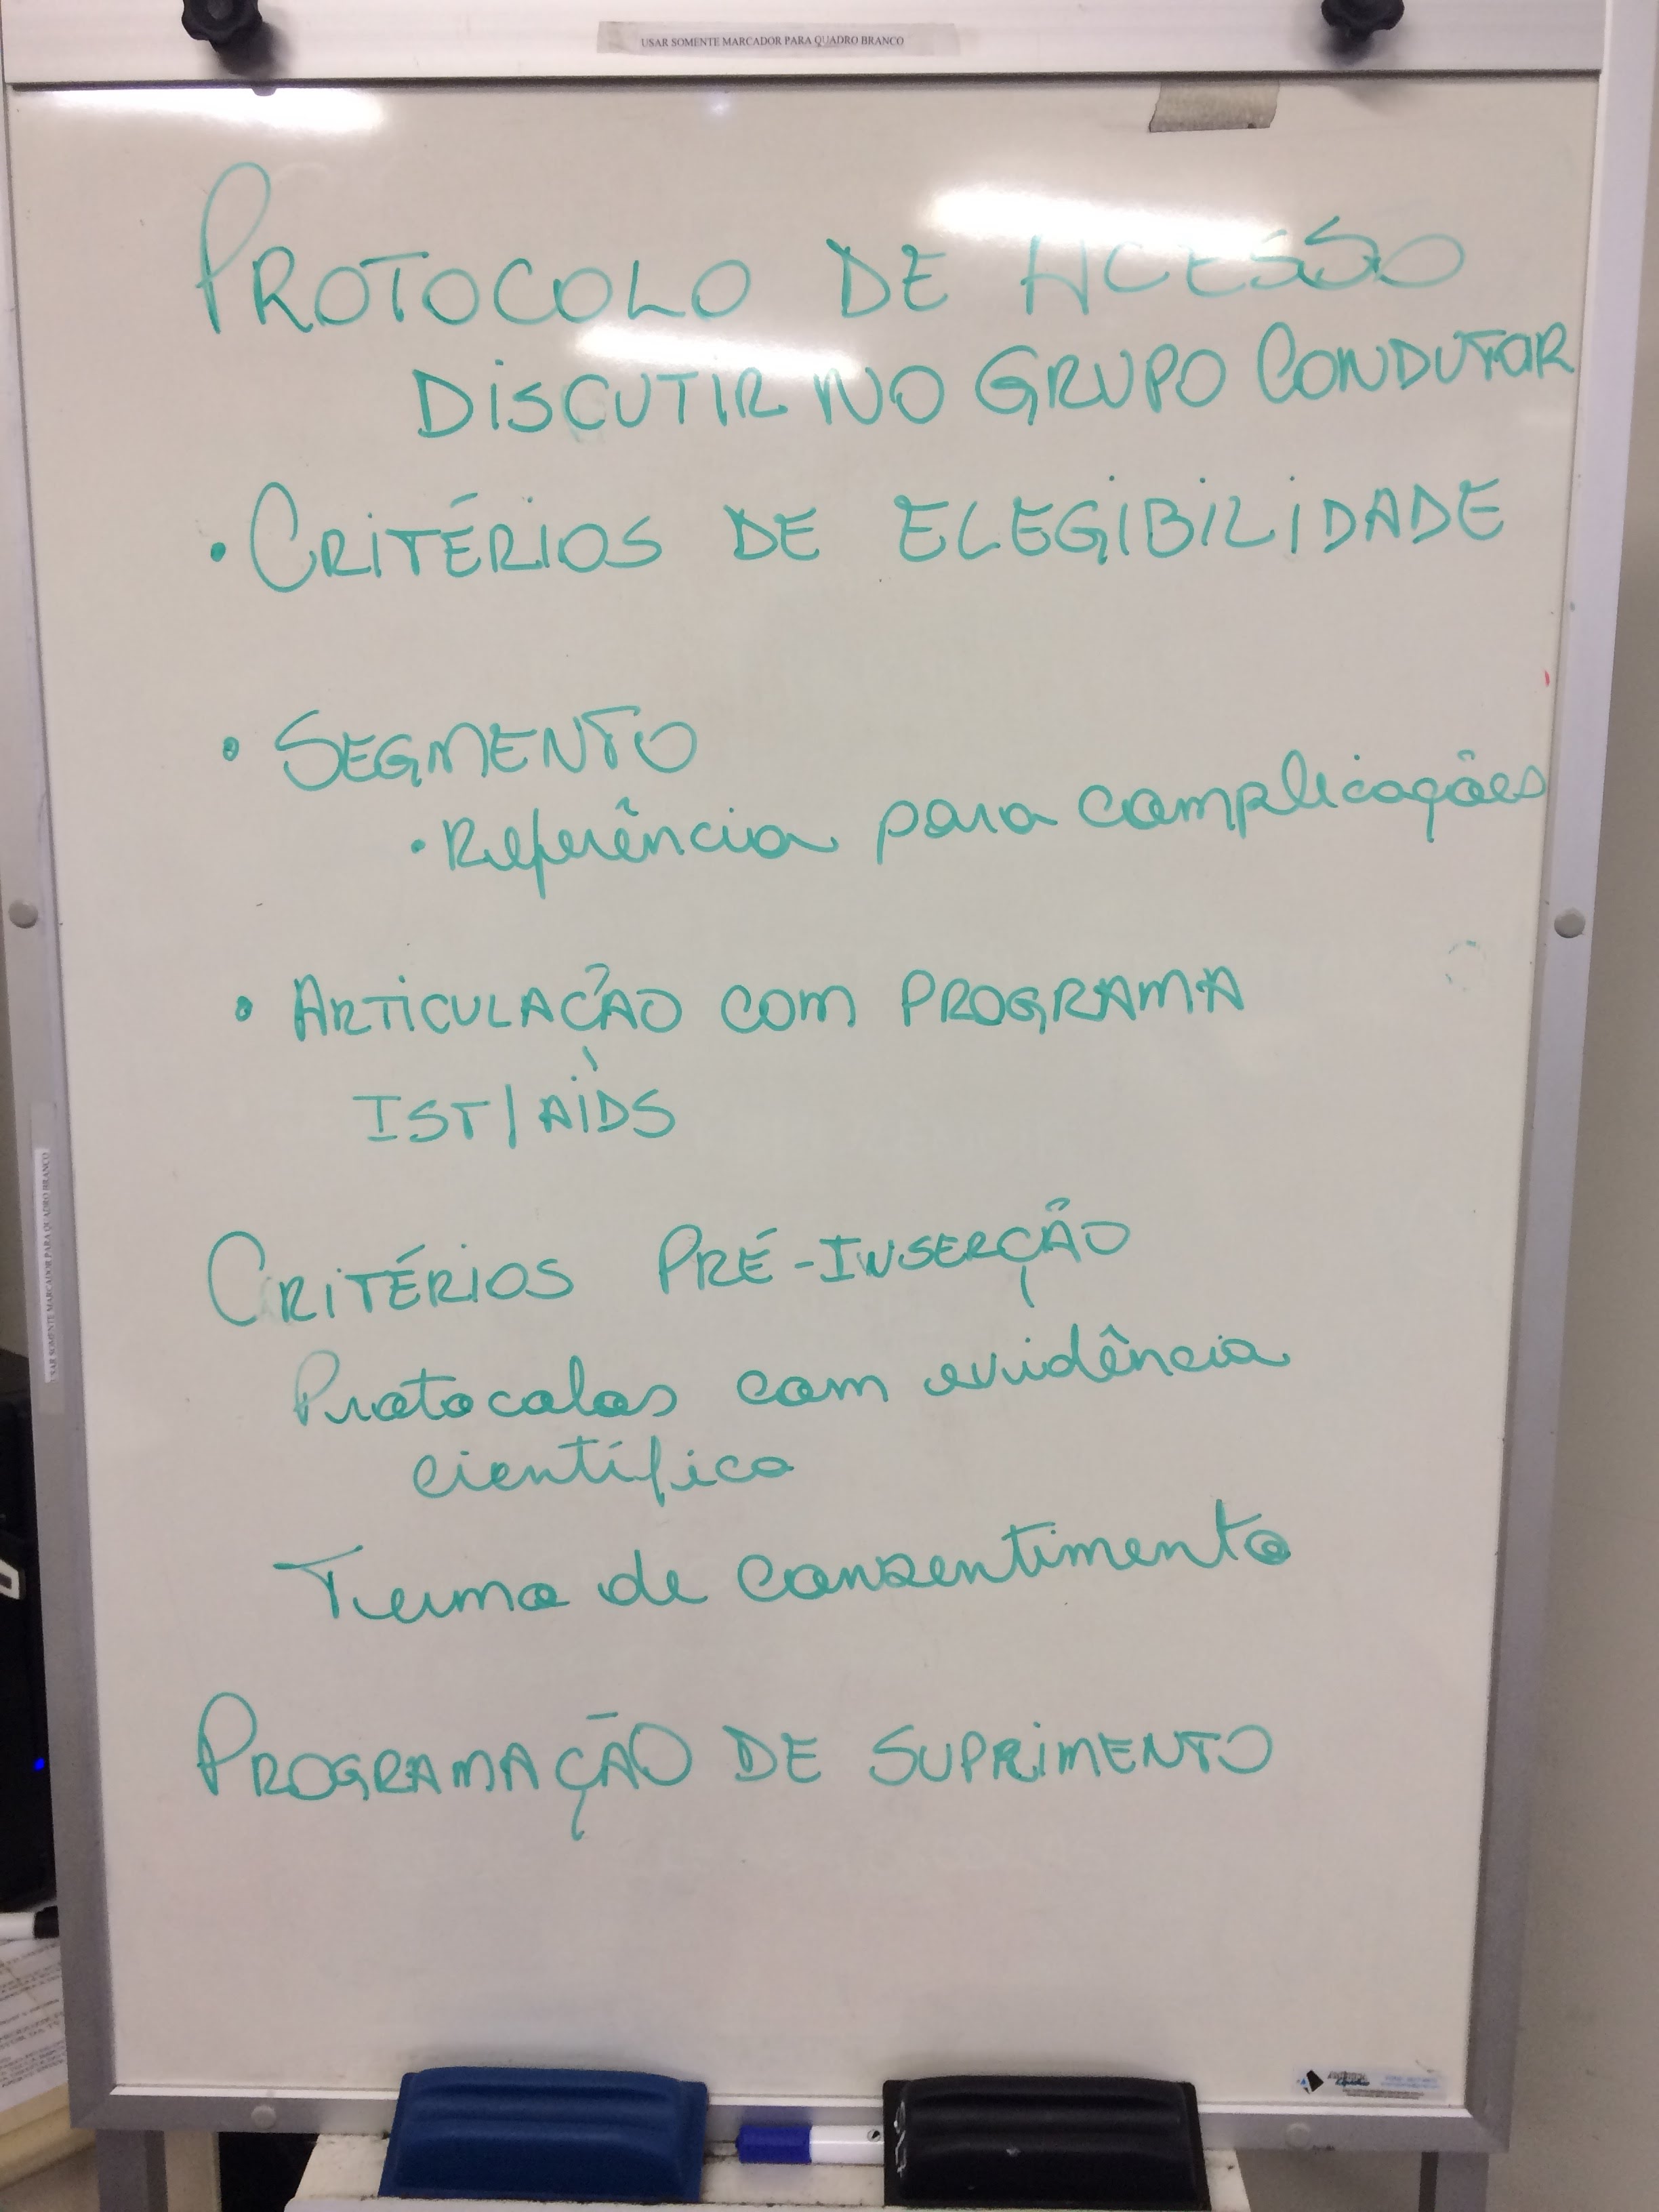 USAR SOMENTE MARCADOR PARA QUADRO BRANCO
PROTOCOLO DE ACESSO
DISCUTIR NO GRUPO CONDUTOR
• CRITÉRIOS DE ELEGIBILIDADE
• SEGMENTO
• Referência para complicações
• ARTICULAÇÃO COM PROGRAMA
IST/AIDS
CRITÉRIOS PRÉ-INSERÇÃO
Protocolos com evidência
científica
Termo de consentimento
PROGRAMAÇÃO DE SUPRIMENTO
USAR SOMENTE MARCADOR PARA QUADRO BRANCO